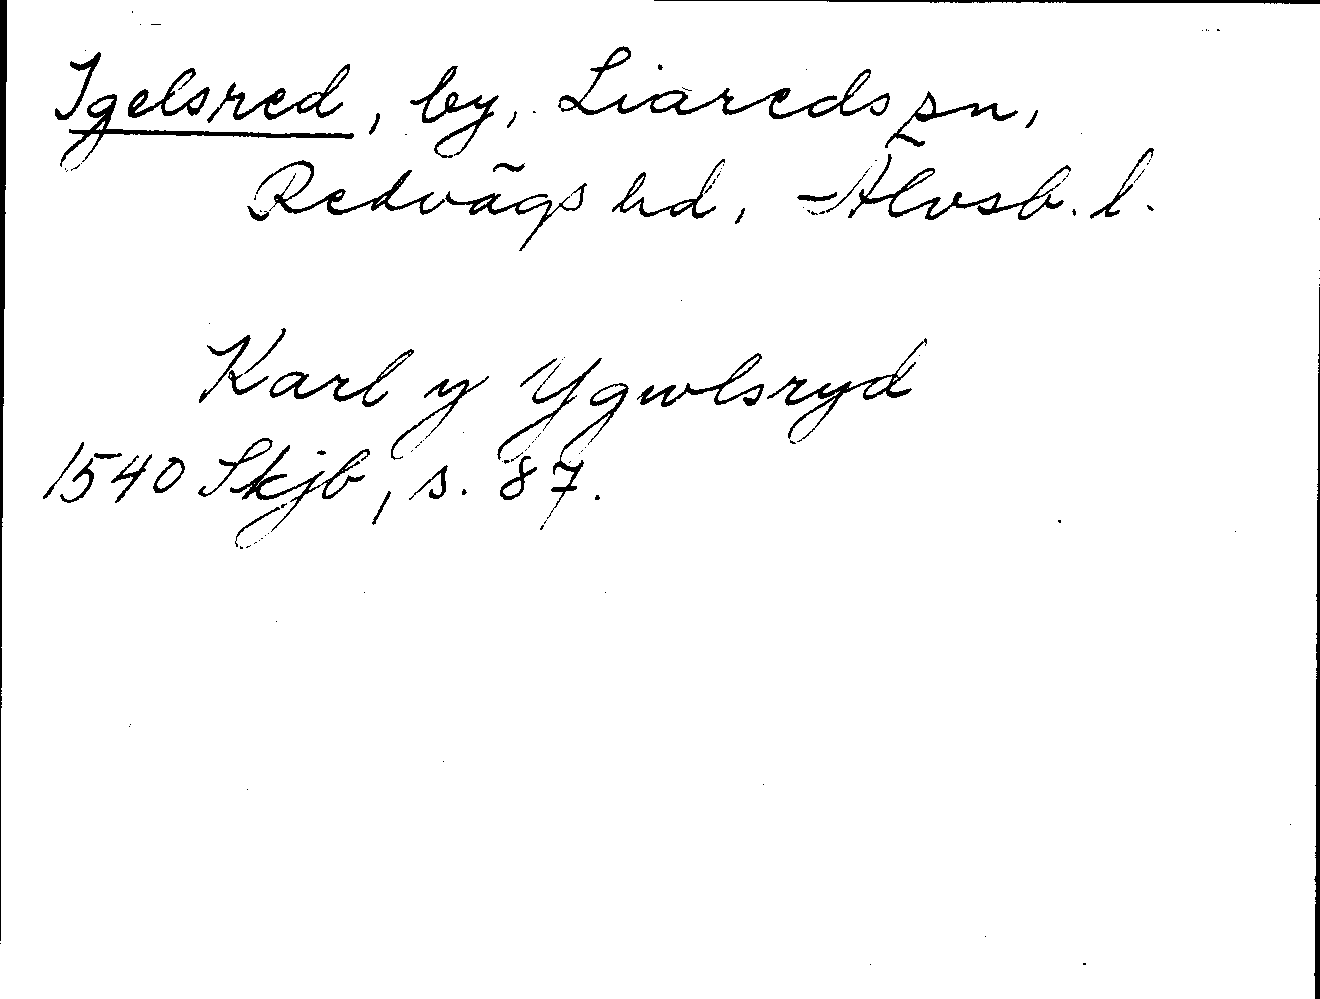 Igelsred, by, Liareds sn,
Redvägs hd, Älvsb. l.
Karl y Ygwlsryd
1540 Skjb, s. 87.